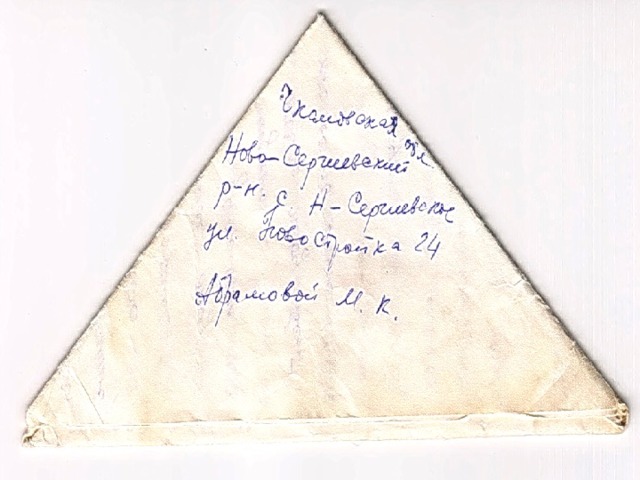 Чкаловская обл.
Ново-Сергиевский
р-н. с. Н-Сергиевское
ул. Новостройка 24
Абрамовой М. К.